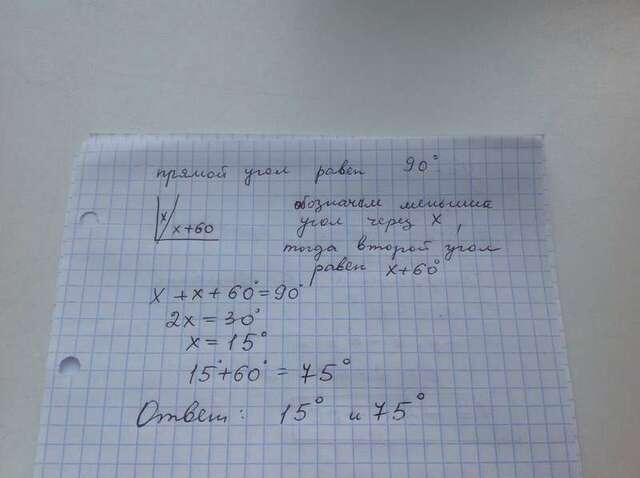 прямой угол равен 90°.
x
x+60
обозначам меньшиа
угол через x,
тогда второй угол
равен x+60°
x+x+60°=90°
2x=30°
x=15°
15°+60°=75°
Ответ: 15° и 75°